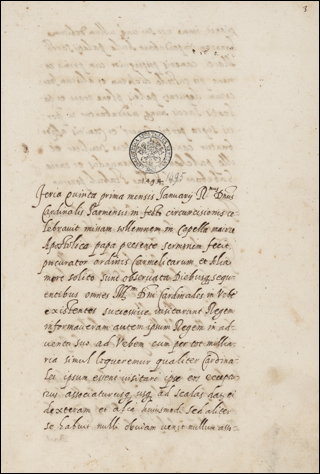 3
1495
feria quinta prima mensis Januarij R.mus D.nus
Cardinalis Parmensis in festo circuncisionis ce-
lebrauit missam sollemnem in Capella maiore
Apostolica papa presente sermonem fecit
procurator ordinis Carmelitarum et alia
more solito sunt obseruata Diebus seq-
uentibus omnes Ill.mi D.ni Cardinales in Vrbe
existentes successiue visitarunt Regem
informauerant autem ipsum Regem in ad-
uentu suo ad Vrbem cum per tot millia-
ria simul loqueremur qualiter Cardina-
les ipsum essent visitare ipse eos
associaturus usq. ad scalas
dexteram et alia huiusmodi sed aliter
se habuit nulli obuiam venit nullum asso-